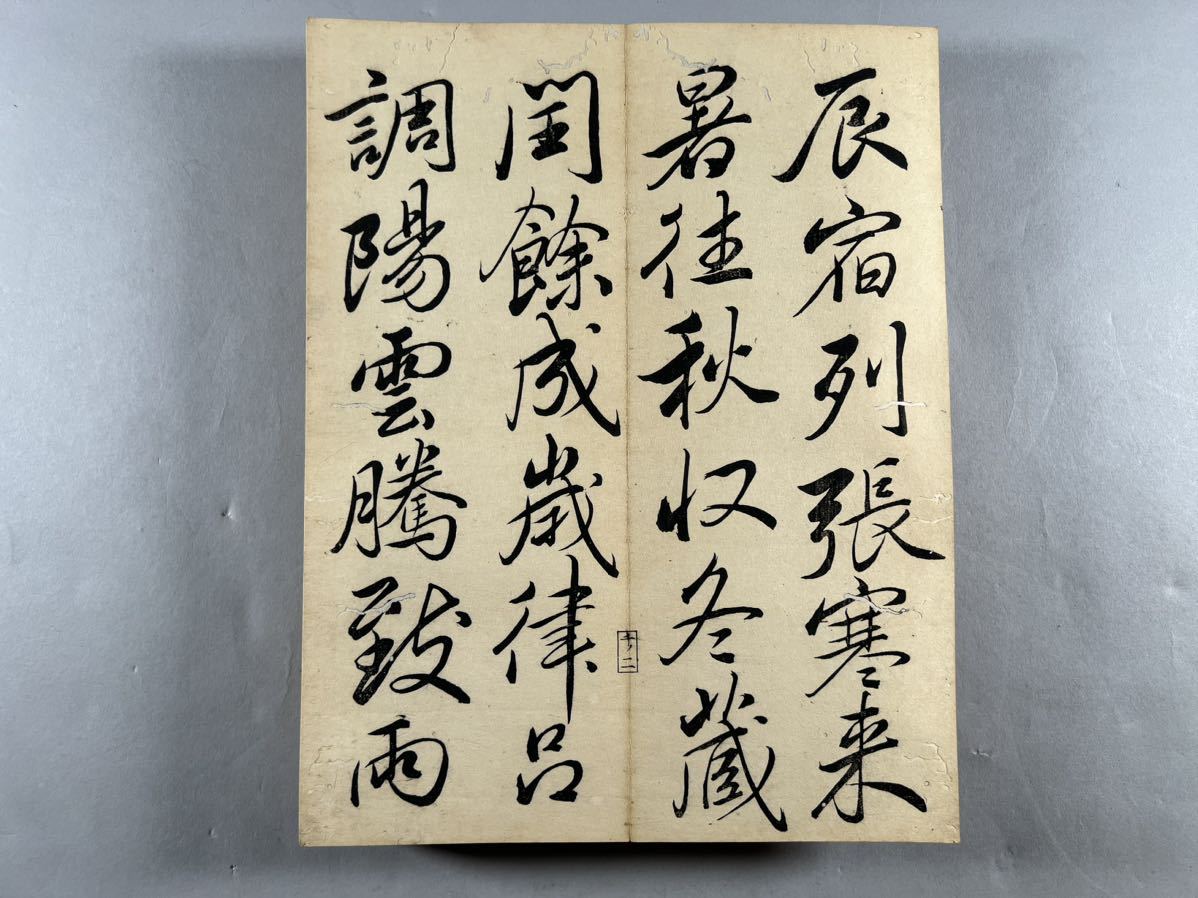 辰宿列張寒来
暑往秋収冬蔵
閏餘成歳律呂
調陽雲騰致雨